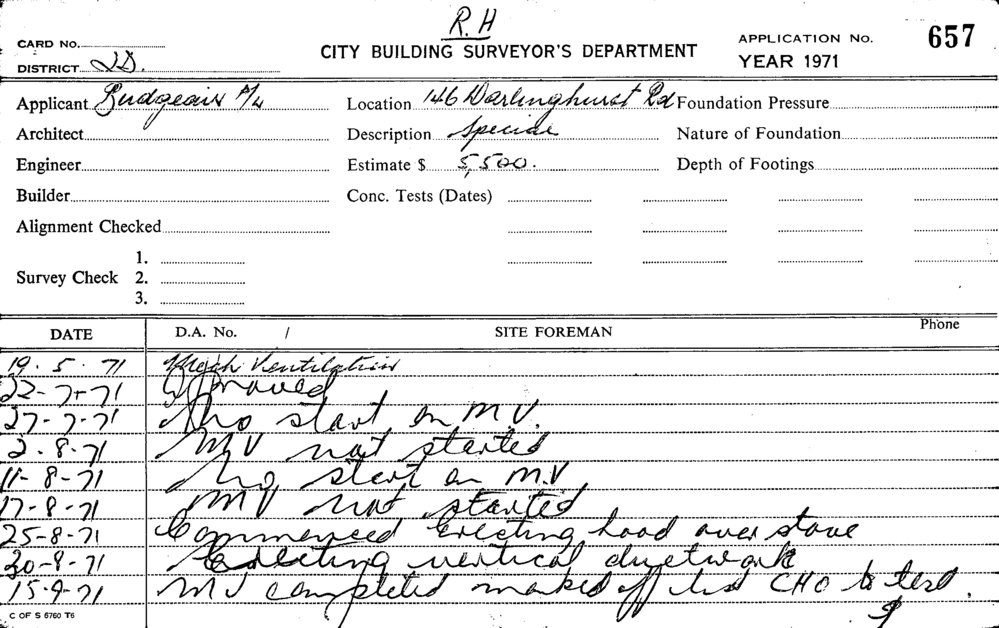 R.H
CARD No.
CITY BUILDING SURVEYOR'S DEPARTMENT
APPLICATION No. 657
DISTRICT 2D.
YEAR 1971
Applicant Budgeair P/L Location 146 Darlinghurst Rd Foundation Pressure
Architect Description Special Nature of Foundation
Engineer Estimate $ 5,500. Depth of Footings
Builder Conc. Tests (Dates)
Alignment Checked
1.
Survey Check 2.
3.
DATE D.A. No. / SITE FOREMAN Phone
19.5.71 Mech Ventilation
22-7-71 Approved
27-7-71 No start on M.V.
2.8.71 MV not started
11-8-71 No start on M.V
17-8-71 MV not started
25-8-71 Commenced Erecting hood over stove
30-8-71 Erecting vertical ductwork
15-9-71 MV completed marked off list CHO to test.
C OF S 6760 T6